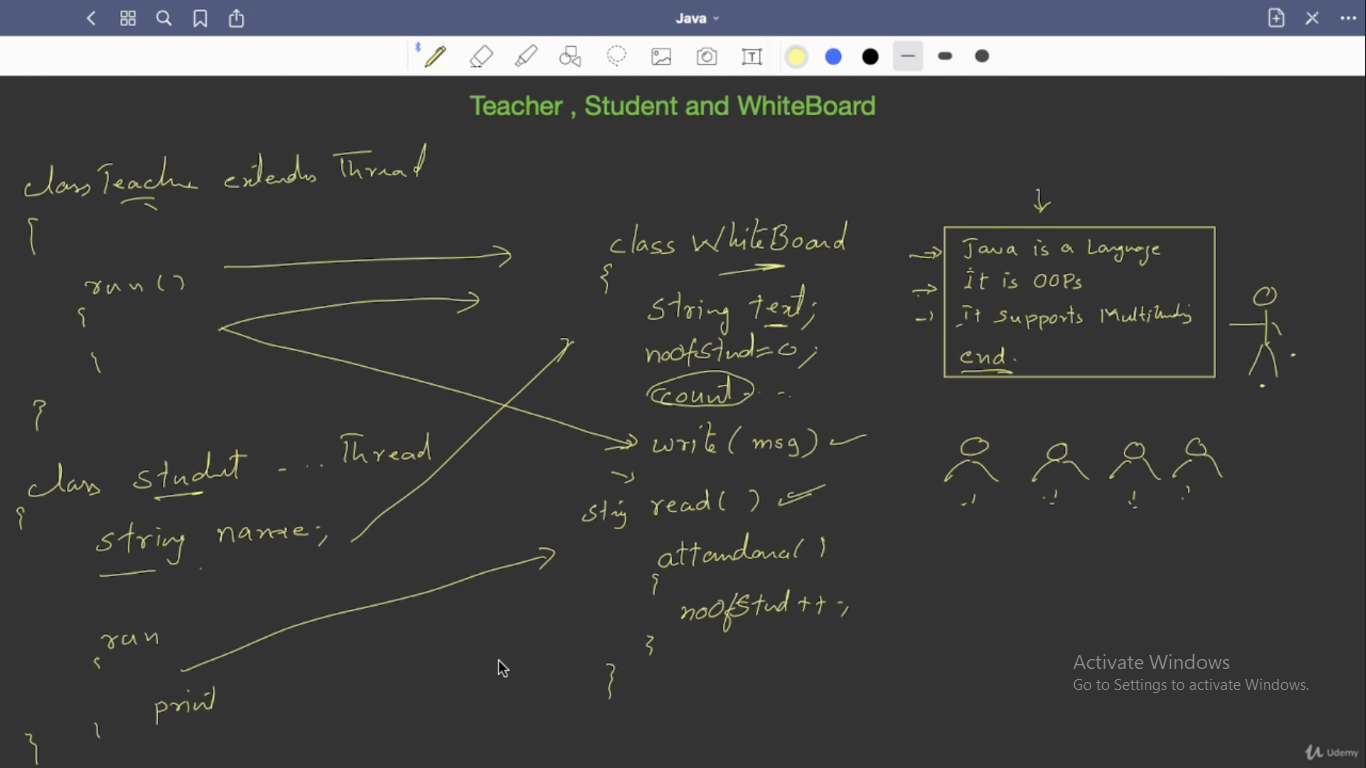 Java
Teacher , Student and WhiteBoard
class Teacher extends Thread
{
run ( )
{
}
}
class student - ... Thread
{
string name;
run
{
print
}
}
class WhiteBoard
{
string text;
noofstud=0;
count- ..
write( msg)
read( )
{
noofstud ++;
}
}
Java is a Language
It is OOPs
It supports
end.
Activate Windows
Go to Settings to activate Windows.
Udemy